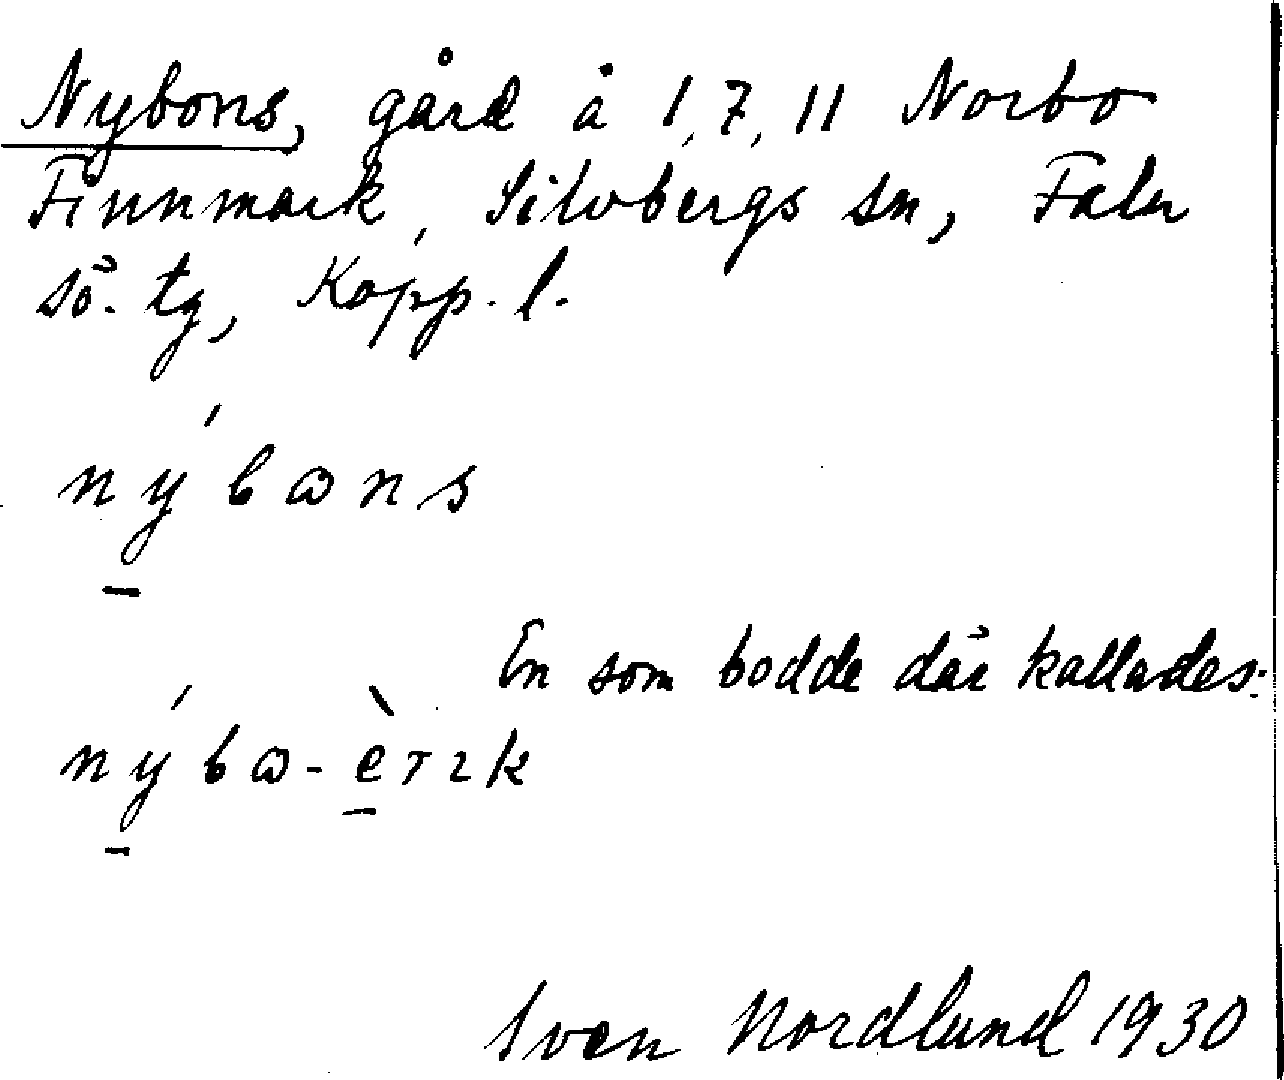 Nybons, gård å 1, 7, 11 Norbo
Finnmark, Silvbergs sn, Falu
sö. tg, Kopp. l.
nýbɷns
En som bodde där kallades:
nýbɷ-èrɪk
Sven Nordlund 1930